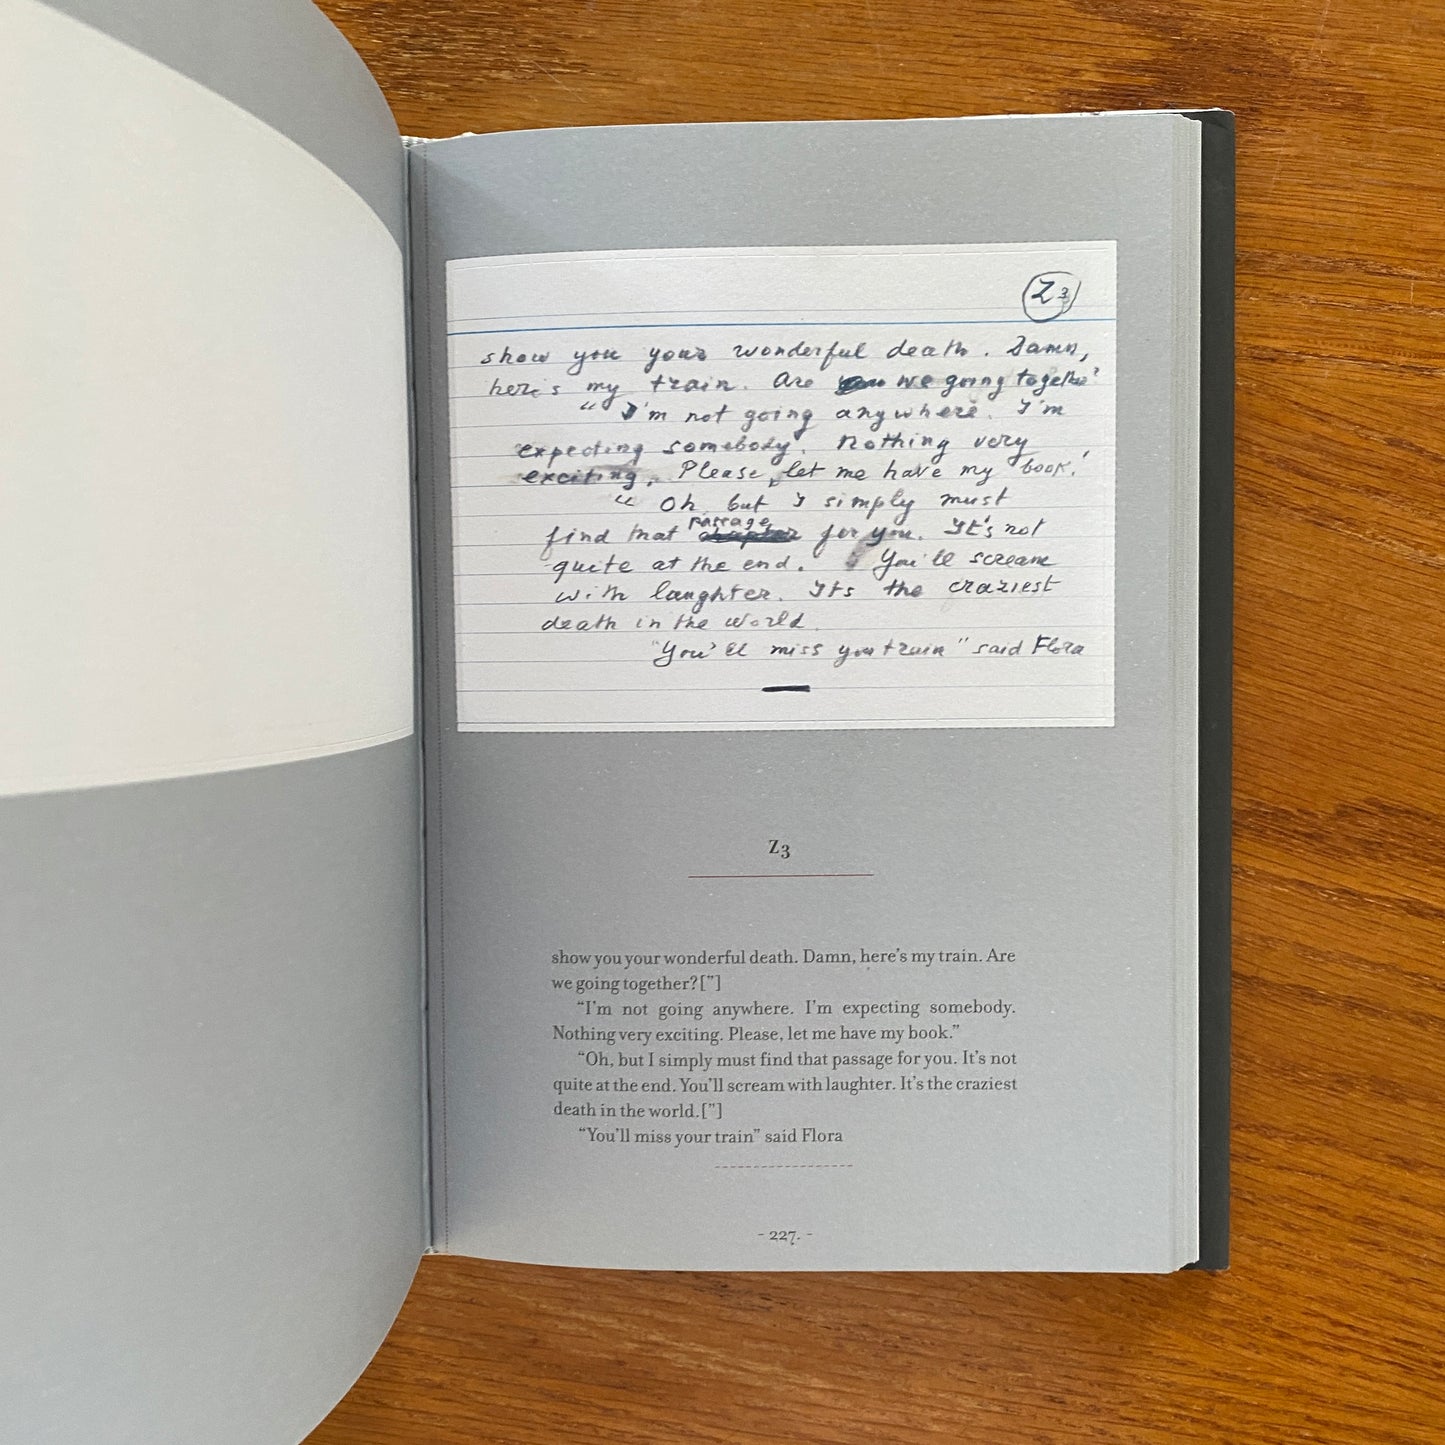 Z3
show you your wonderful death. Damn,
here's my train. Are we going together?
" I'm not going anywhere. I'm
expecting somebody. Nothing very
exciting. Please, let me have my book."
" Oh, but I simply must
passage
find that chapter for you. It's not
quite at the end. You'll scream
with laughter. Its the craziest
death in the world.
"You'll miss you train" said Flora
Z3
show you your wonderful death. Damn, here's my train. Are
we going together?["]
"I'm not going anywhere. I'm expecting somebody.
Nothing very exciting. Please, let me have my book."
"Oh, but I simply must find that passage for you. It's not
quite at the end. You'll scream with laughter. It's the craziest
death in the world.["]
"You'll miss your train" said Flora
- 227. -